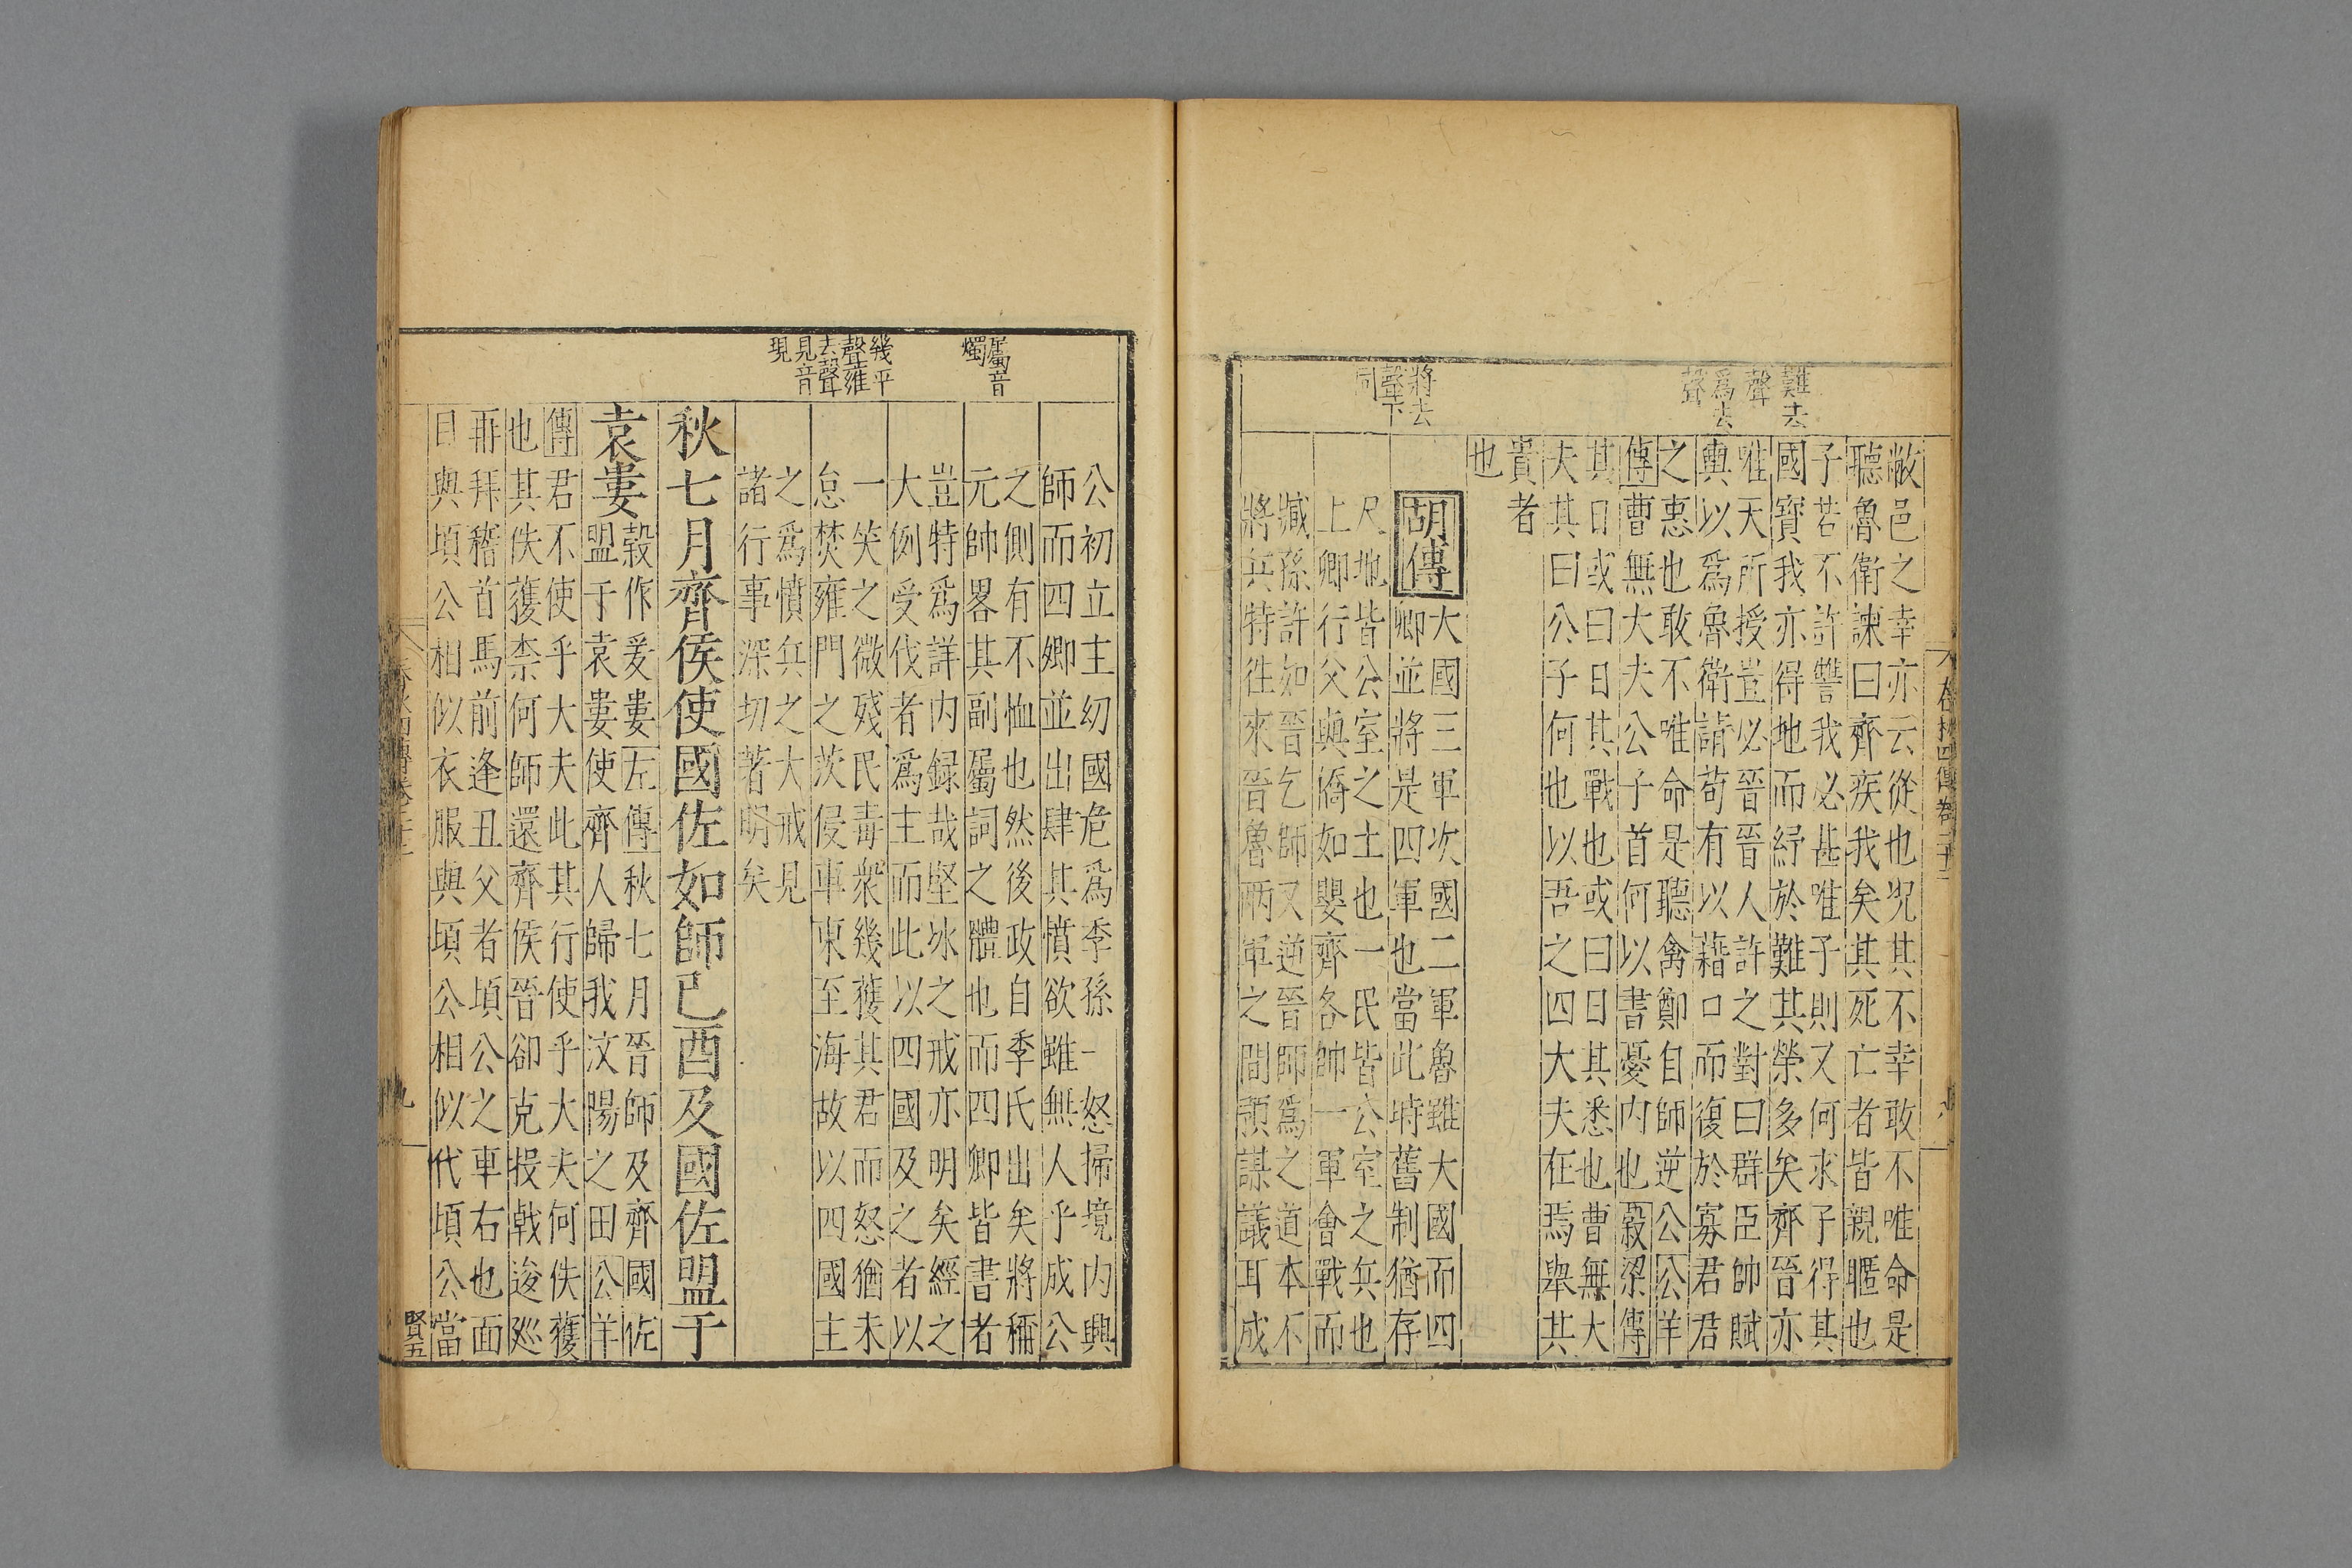 難去
聲
爲去
聲
將去
聲下
同
敝邑之幸亦云從也況其不幸敢不唯命是
聽魯衛諫曰齊疾我矣其死亡者皆親暱也
子若不許讐我必甚唯子則又何求子得其
國寶我亦得地而紓於難其榮多矣齊晉亦
唯天所授豈必晉晉人許之對曰群臣帥賦
輿以爲魯衛請苟有以藉口而復於寡君君
之惠也敢不唯命是聽禽鄭自師逆公公羊
傳曹無大夫公子首何以書憂內也穀梁傳
其日或曰日其戰也或曰日其悉也曹無大
夫其曰公子何也以吾之四大夫在焉舉其
貴者
也
胡傳
大國三軍次國二軍魯雖大國而四
卿並將是四軍也當此時舊制猶存
尺地皆公室之土也一民皆公室之兵也
上卿行父與僑如嬰齊各帥一軍會戰而
臧孫許如晉乞師又逆晉師爲之道本不
將兵特往來晉魯兩軍之間預謀議耳成
春秋四傳卷二十
八
屬音
燭
幾平
聲雍
去聲
見音
現
公初立主幼國危爲季孫一怒掃境內興
師而四卿並出肆其憤欲雖無人乎成公
之側有不恤也然後政自季氏出矣將稱
元帥畧其副屬詞之體也而四卿皆書者
豈特爲詳內録哉堅冰之戒亦明矣經之
大例受伐者爲主而此以四國及之者以
一笑之微殘民毒衆幾獲其君而怒猶未
怠焚雍門之茨侵車東至海故以四國主
之爲憤兵之大戒見
諸行事深切著明矣
秋七月齊侯使國佐如師己酉及國佐盟于
袁婁
穀作爰婁左傳秋七月晉師及齊國佐
盟于袁婁使齊人歸我汶陽之田公羊
傳君不使乎大夫此其行使乎大夫何佚獲
也其佚獲柰何師還齊侯晉郤克投戟逡廵
再拜稽首馬前逢丑父者頃公之車右也面
目與頃公相似衣服與頃公相似代頃公當
九
賢五